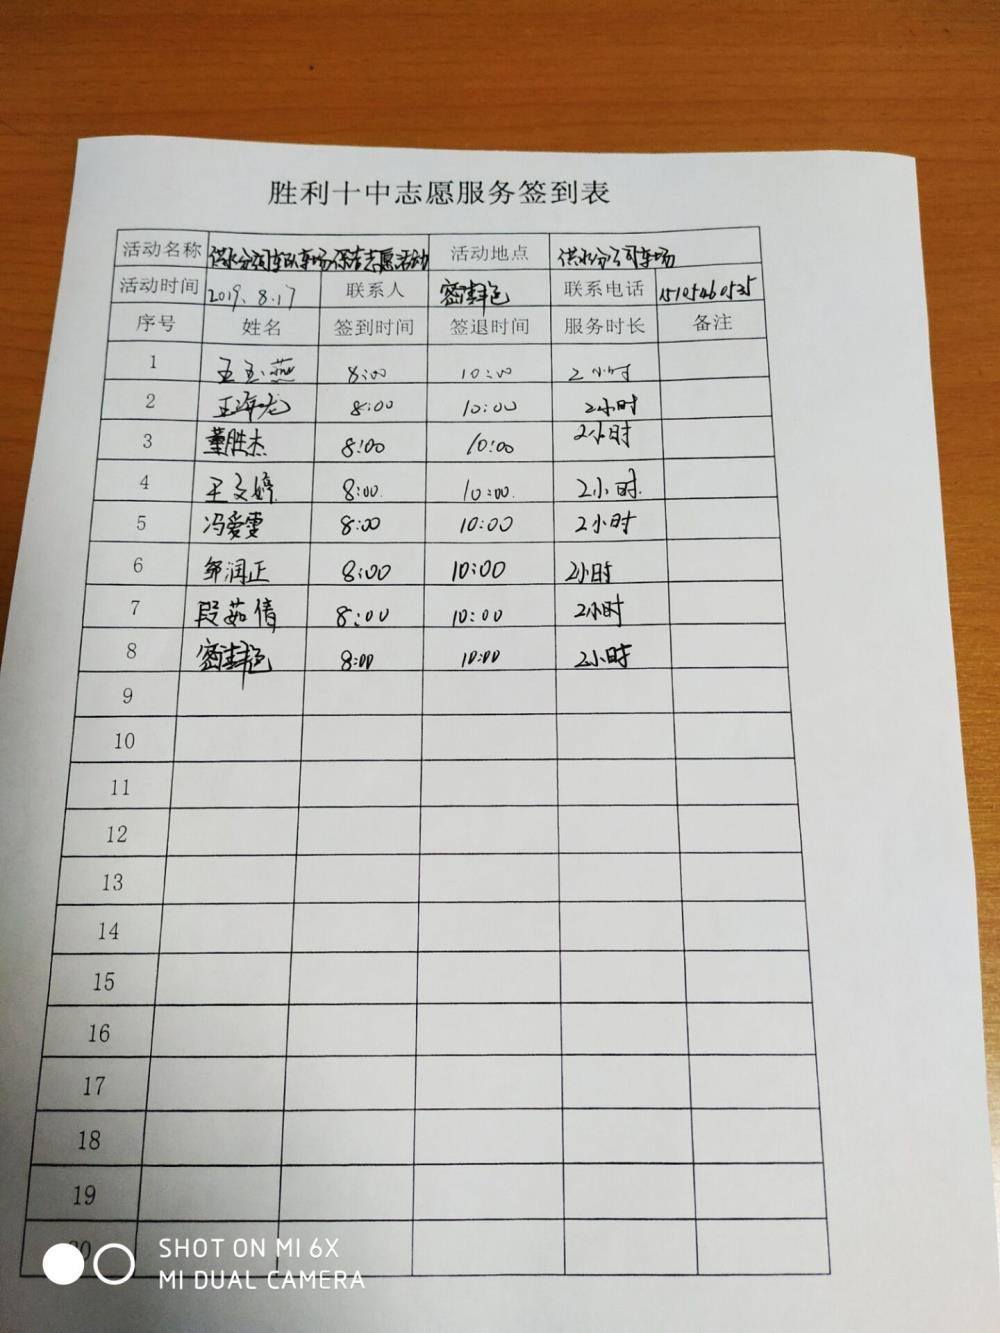 胜利十中志愿服务签到表
活动名称 供水分公司车队车场保洁志愿活动 活动地点 供水分公司车场
活动时间 2019.8.17 联系人 联系电话 15105460525
序号 姓名 签到时间 签退时间 服务时长 备注
1 王玉燕 8:00 10:00 2小时
2 王海龙 8:00 10:00 2小时
3 董胜杰 8:00 10:00 2小时
4 王文婷 8:00. 10:00. 2小时.
5 冯爱雯 8:00 10:00 2小时
6 邹润正 8:00 10:00 2小时
7 段茹倩 8:00 10:00 2小时
8 8:00 10:00 2小时
9
10
11
12
13
14
15
16
17
18
19
20
SHOT ON MI 6X
MI DUAL CAMERA